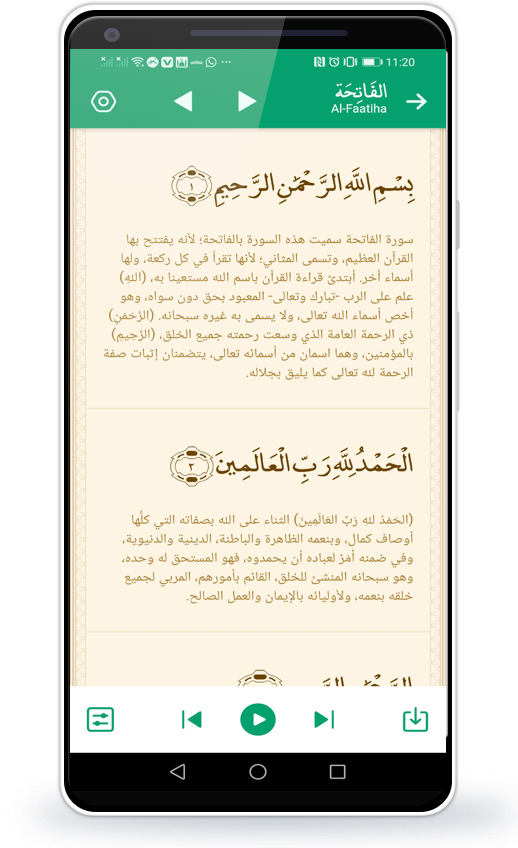 11:20
الفَاتِحَة
Al-Faatiha
بِسْمِ اللَّهِ الرَّحْمَٰنِ الرَّحِيمِ ١
سورة الفاتحة سميت هذه السورة بالفاتحة؛ لأنه يفتتح بها
القرآن العظيم، وتسمى المثاني؛ لأنها تقرأ في كل ركعة، ولها
أسماء أخر. أبتدئ قراءة القرآن باسم الله مستعينا به، (اللهِ)
علم على الرب -تبارك وتعالى- المعبود بحق دون سواه، وهو
أخص أسماء الله تعالى، ولا يسمى به غيره سبحانه. (الرَّحْمَنِ)
ذي الرحمة العامة الذي وسعت رحمته جميع الخلق، (الرَّحِيمِ)
بالمؤمنين، وهما اسمان من أسمائه تعالى، يتضمنان إثبات صفة
الرحمة لله تعالى كما يليق بجلاله.
الْحَمْدُ لِلَّهِ رَبِّ الْعَالَمِينَ ٢
(الحَمْدُ للهِ رَبِّ العَالَمِينَ) الثناء على الله بصفاته التي كلُّها
أوصاف كمال، وبنعمه الظاهرة والباطنة، الدينية والدنيوية،
وفي ضمنه أَمْرٌ لعباده أن يحمدوه، فهو المستحق له وحده،
وهو سبحانه المنشئ للخلق، القائم بأمورهم، المربي لجميع
خلقه بنعمه، ولأوليائه بالإيمان والعمل الصالح.